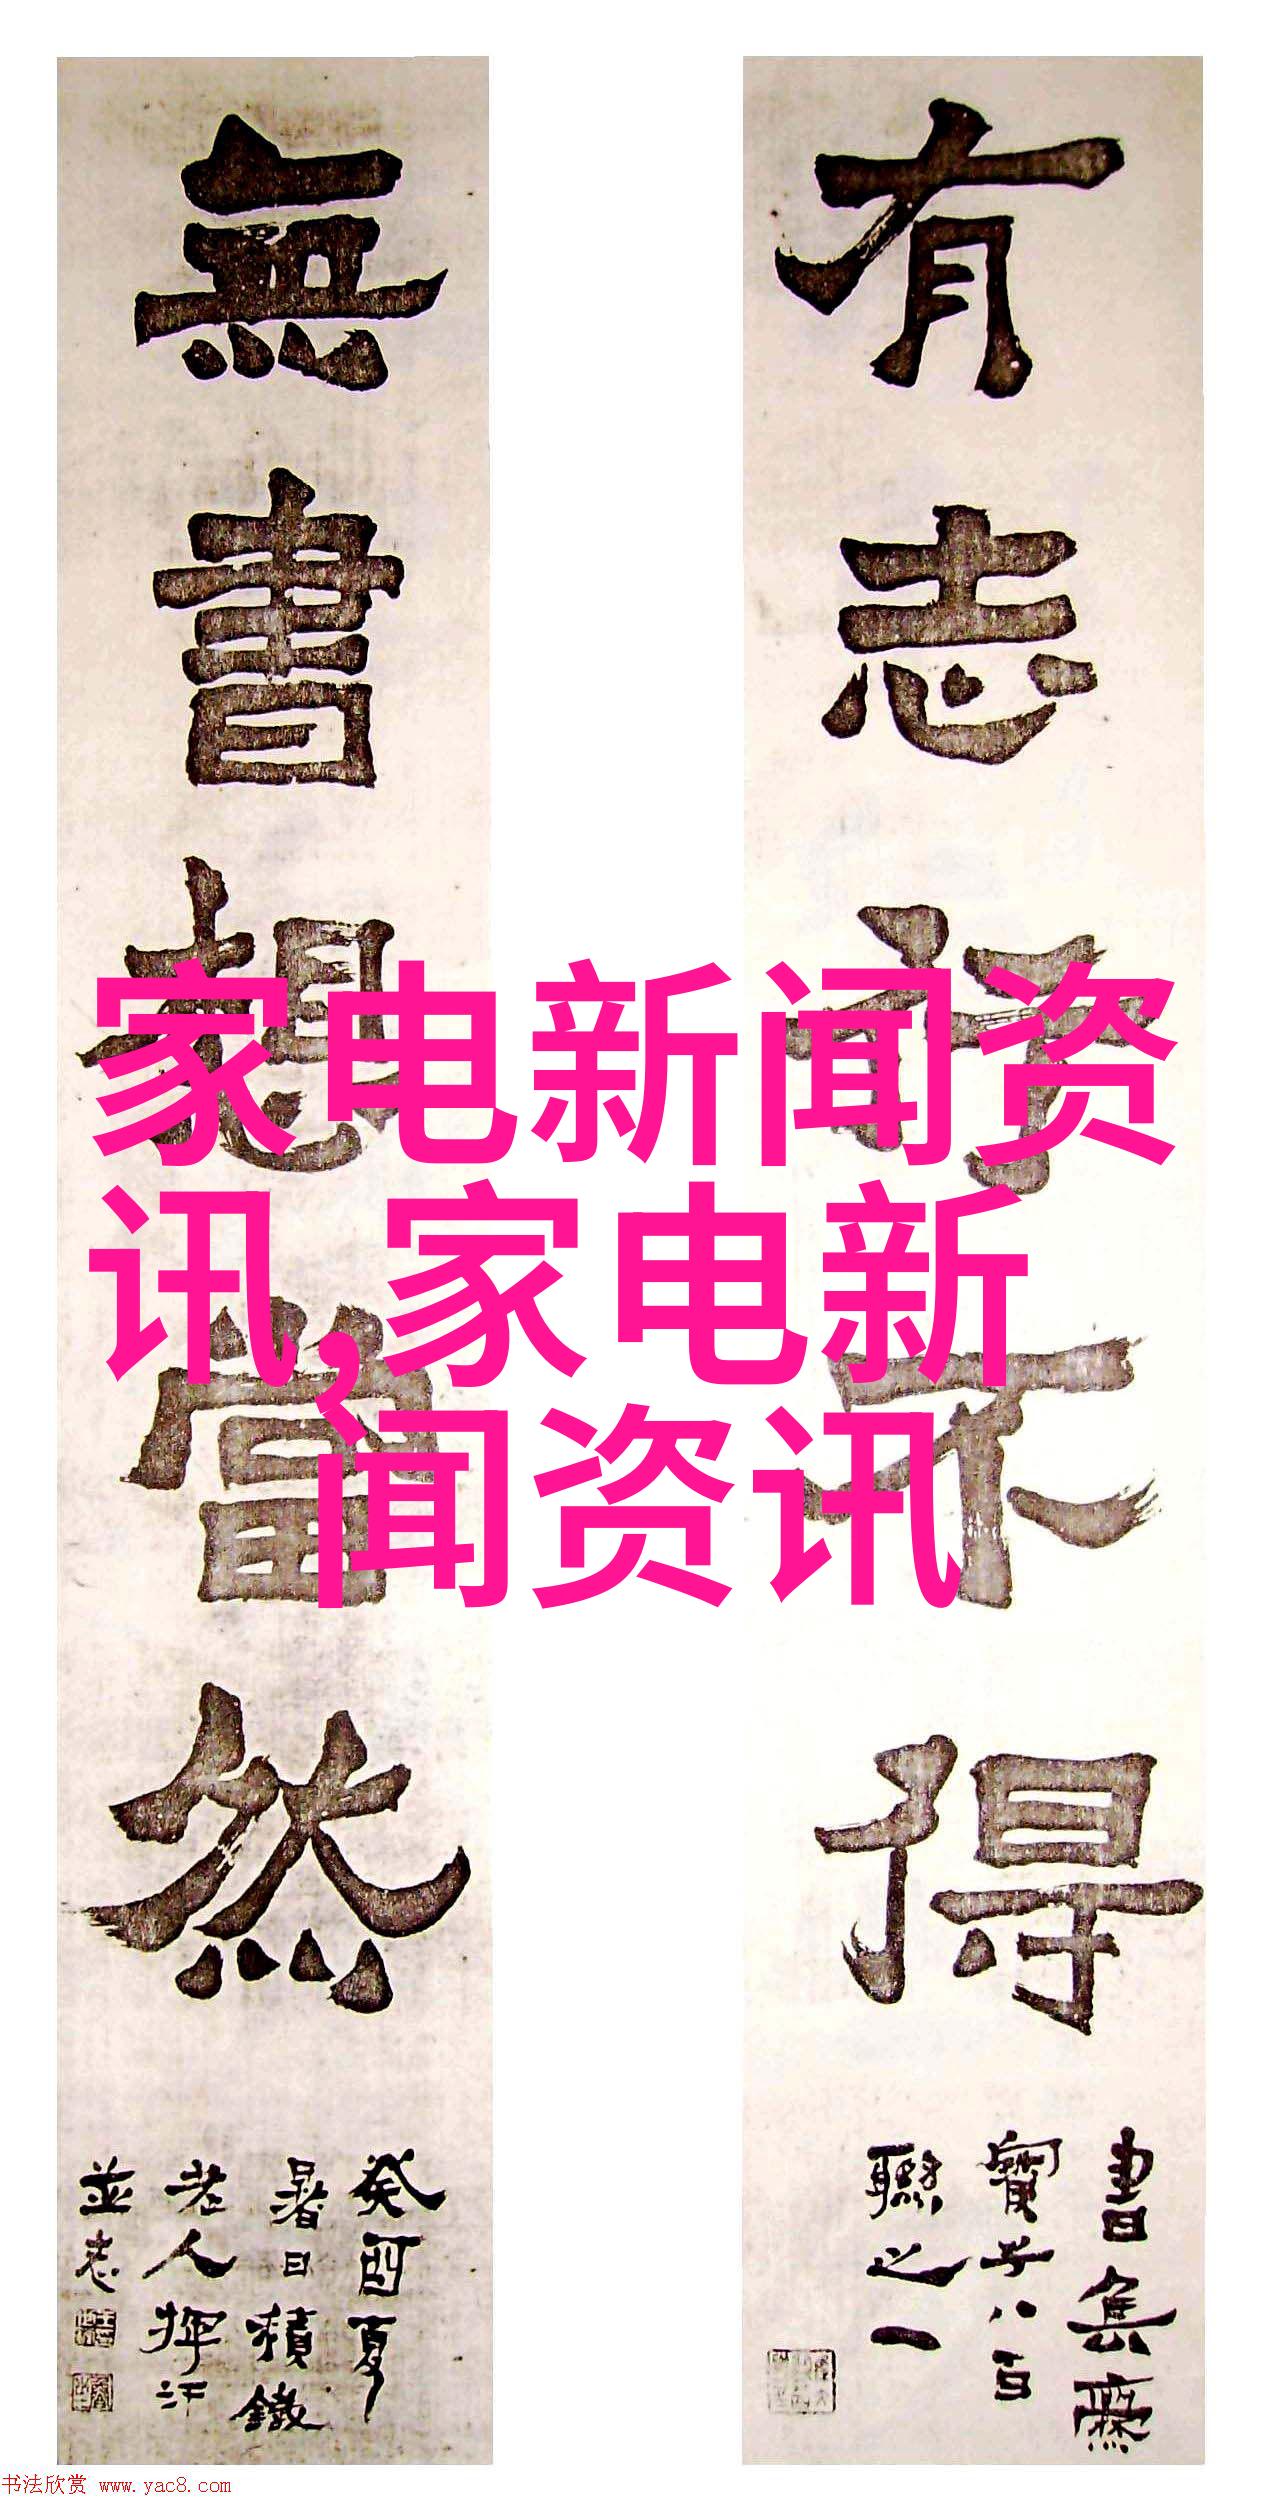 有志行不得
書集爨
寶子八百
聯之一
無書想當然
癸酉夏
暑日積鐵
老人揮汗
並志
家电新闻资
讯,家电新
闻资讯
书法欣赏 www.yac8.com